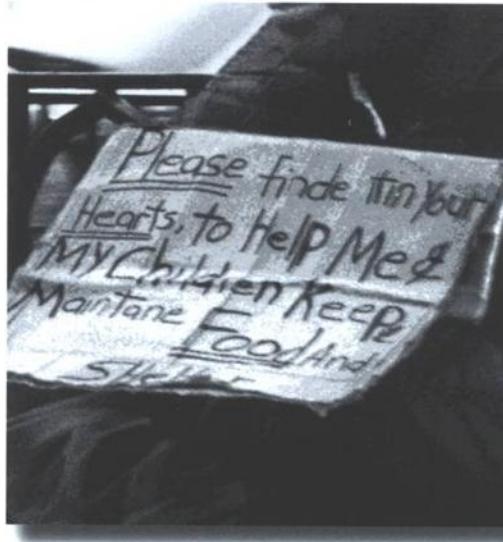 Please finde it in Your
Hearts, to Help Me &
My Children Keep &
Maintane Food And
Shelter